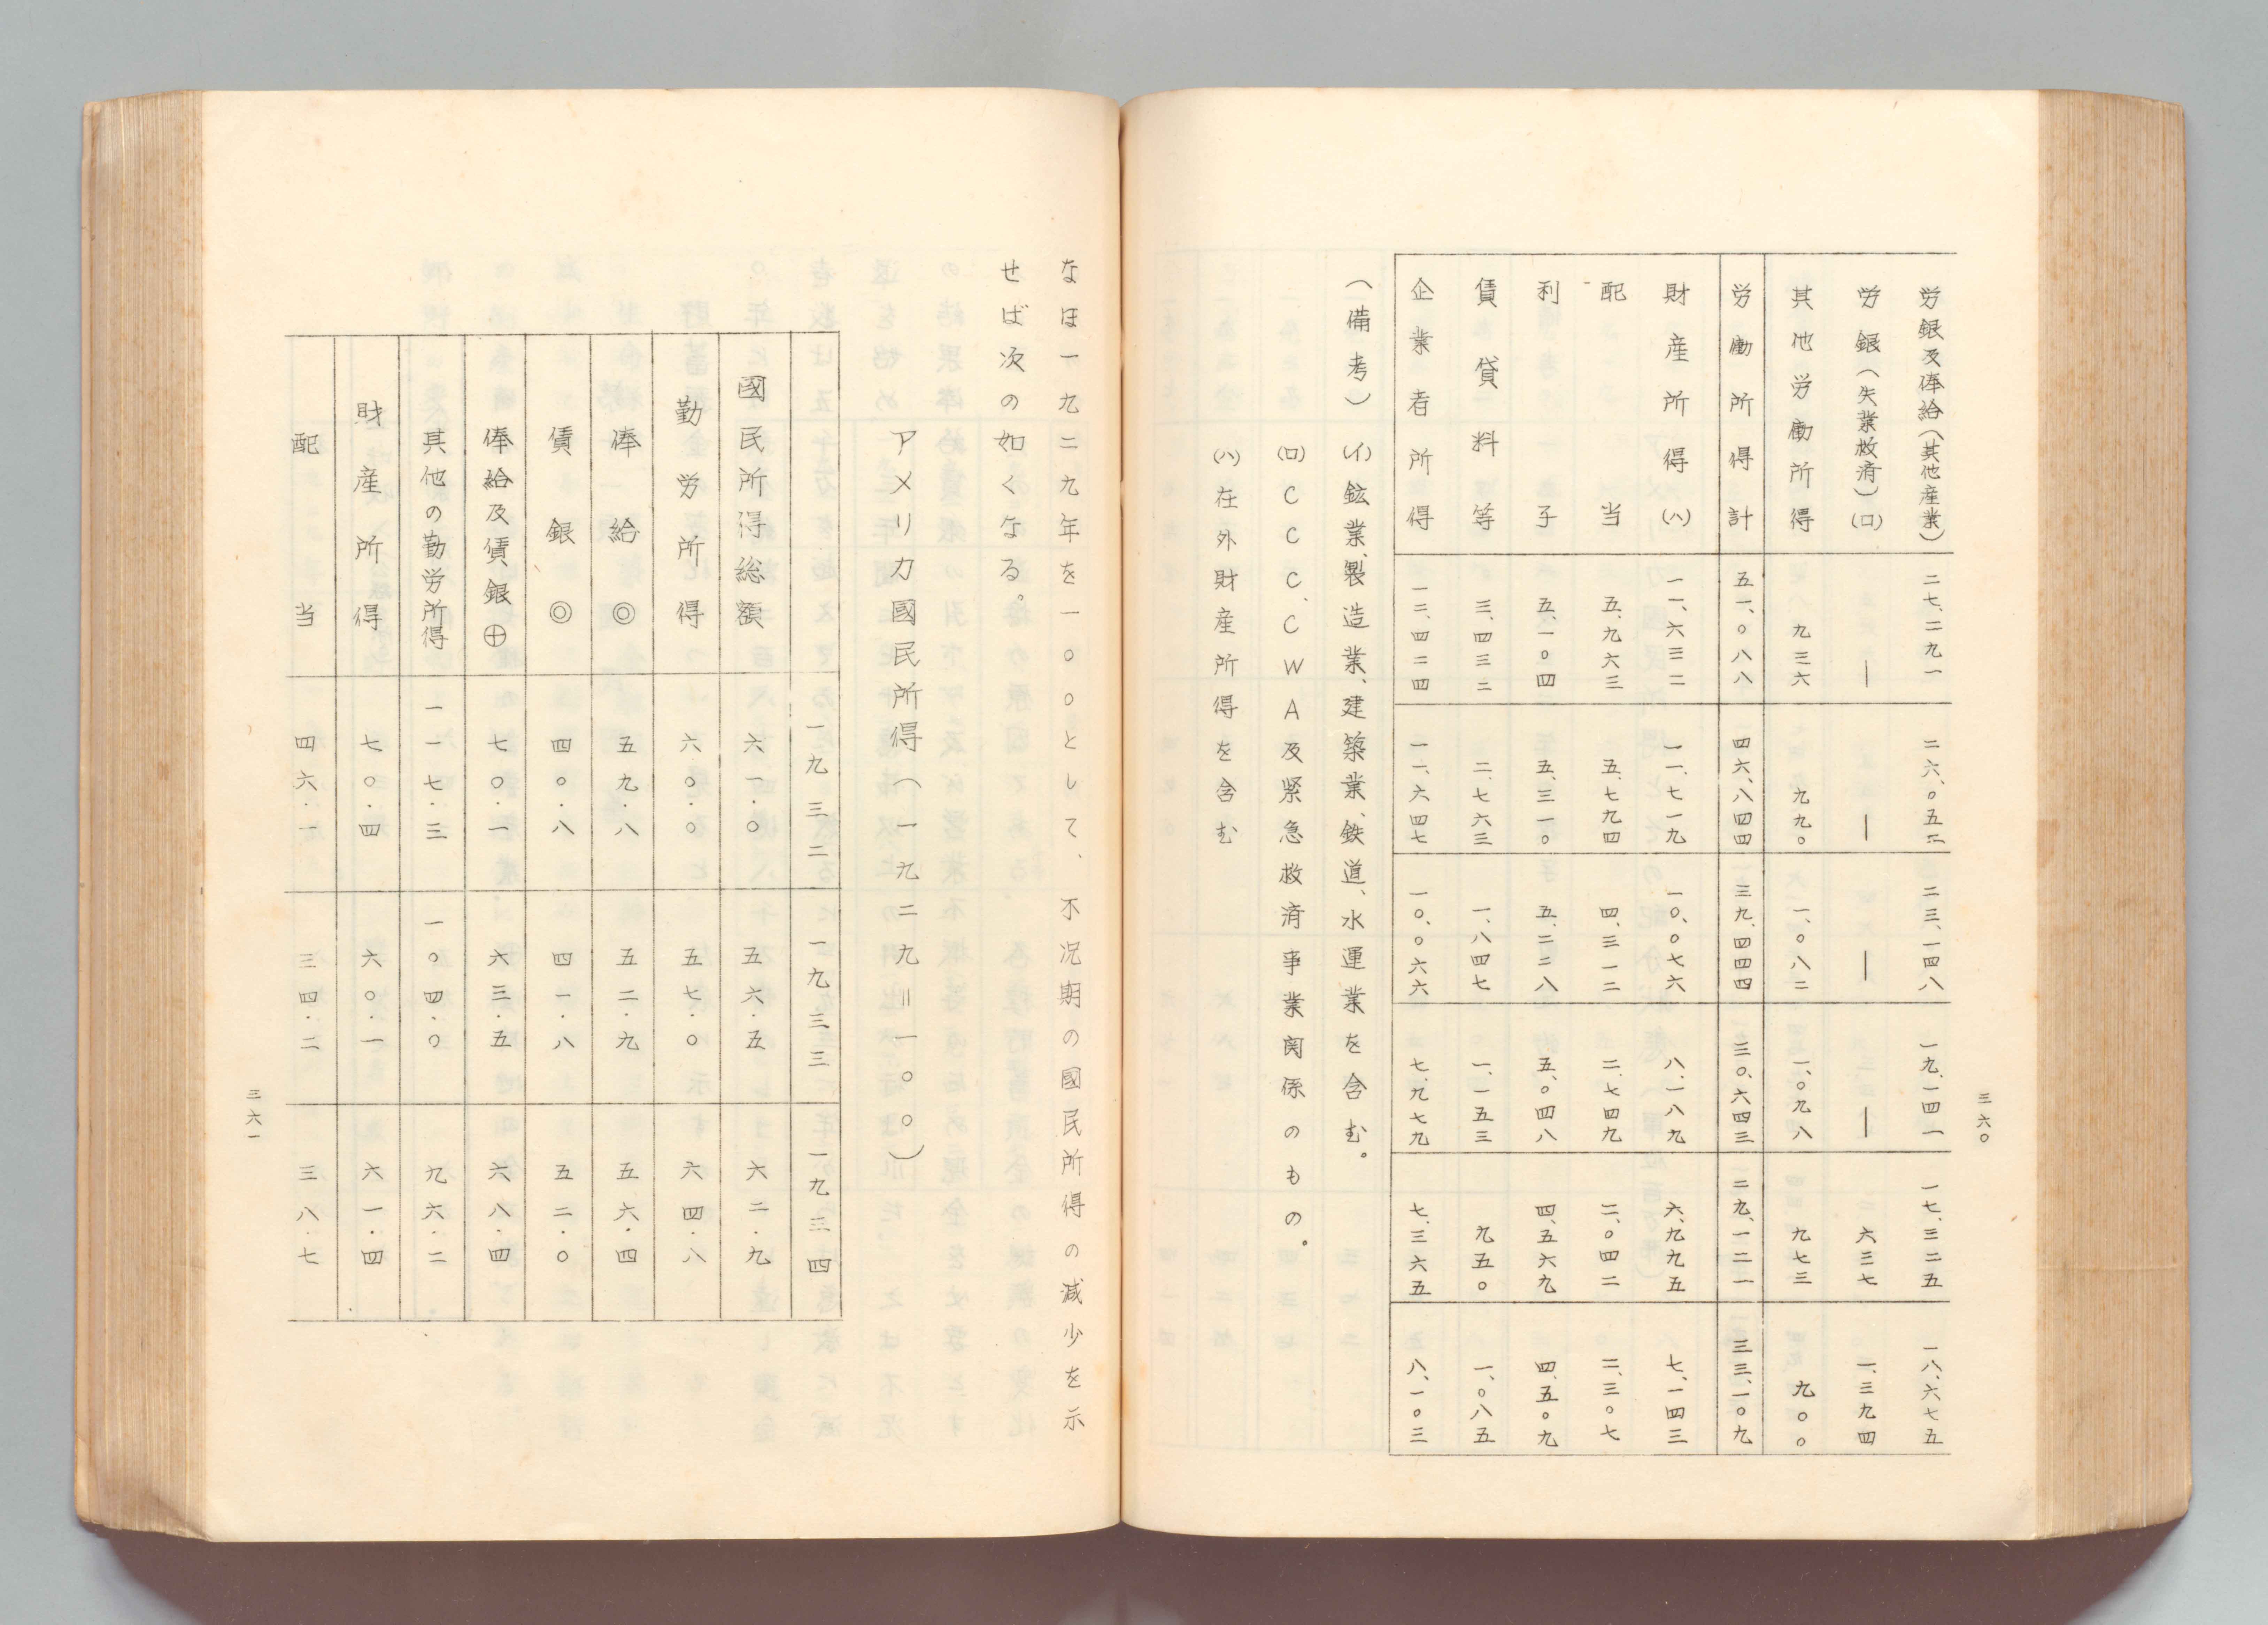 三六〇
労銀及俸給（其他産業） 二七、二九一 二六、〇五 二三、一四八 一九、一四一 一七、三二五 一八、六七五
労銀（失業救済）(ロ) ― ― ― ― 六三七 一、三九四
其他労働所得 九三六 九九〇 一、〇八二 一、〇九八 九七三 九〇〇
労働所得計 五一、〇八八 四六、八四四 三九、四四四 三〇、六四三 二九、一二一 三三、一〇九
財産所得(ハ) 一一、六三二 一一、七一九 一〇、〇七六 八、一八九 六、九九五 七、一四三
配当 五、九六三 五、七九四 四、三一二 二、七四九 二、〇四二 二、三〇七
利子 五、一〇四 五、三一〇 五、二二八 五、〇四八 四、五六九 四、五〇九
賃貸料等 三、四三二 二、七六三 一、八四七 一、一五三 九五〇 一、〇八五
企業者所得 一三、四二四 一一、六四七 一〇、〇六六 七、九七九 七、三六五 八、一〇三
（備考）(イ)鉱業、製造業、建築業、鉄道、水運業を含む。
(ロ)CCC、CWA及緊急救済事業関係のもの。
(ハ)在外財産所得を含む
なほ一九二九年を一〇〇として、不況期の國民所得の減少を示
せば次の如くなる。
アメリカ國民所得（一九二九＝一〇〇）
一九三二 一九三三 一九三四
國民所得総額 六一・〇 五六・五 六二・九
勤労所得 六〇・〇 五七・〇 六四・八
俸給◎ 五九・八 五二・九 五六・四
賃銀◎ 四〇・八 四一・八 五二・〇
俸給及賃銀⊕ 七〇・一 六三・五 六八・四
其他の勤労所得 一一七・三 一〇四・〇 九六・二
財産所得 七〇・四 六〇・一 六一・四
配当 四六・一 三四・二 三八・七
三六一